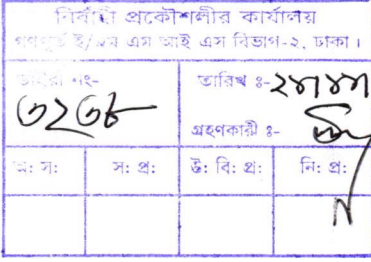 নির্বাহী প্রকৌশলীর কার্যালয়
গণপূর্ত ই/এম এম আই এস বিভাগ-২, ঢাকা।
ডাইরী নং-
তারিখ ঃ-
৩২৩৮
গ্রহণকারী ঃ-
অ: স: স: প্র: উ: বি: প্র: নি: প্র: